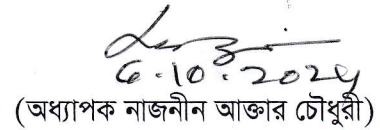 6.10.2024
(অধ্যাপক নাজনীন আক্তার চৌধুরী)